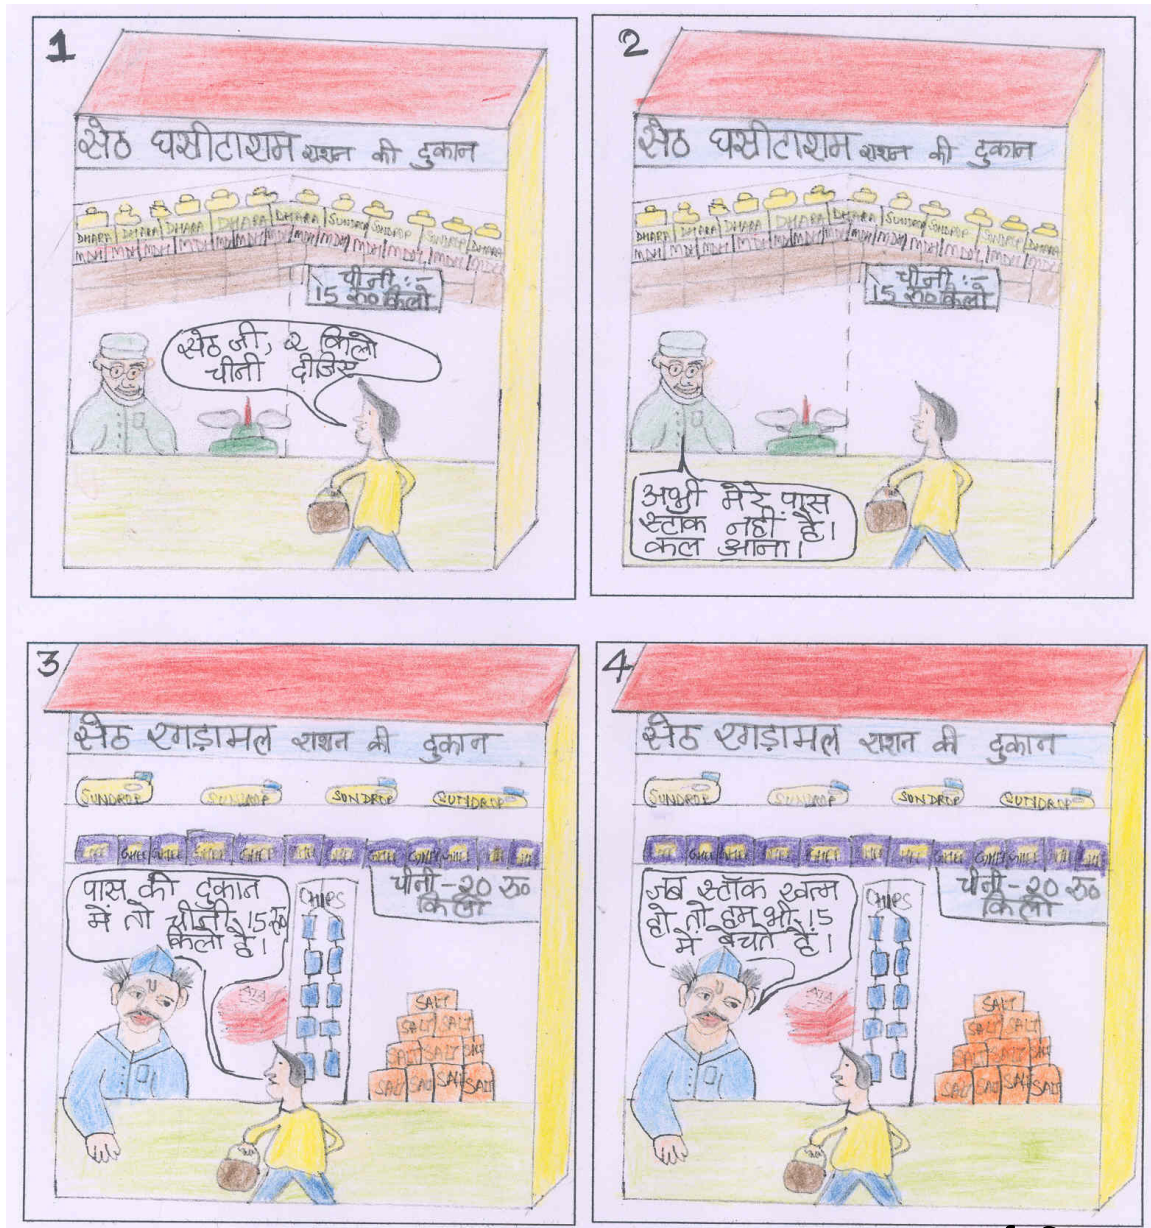 1
सेठ घसीटाराम राशन की दुकान
DHARA DHARA DHARA DHARA DHARA SUNDROP SUNDROP SUNDROP DHARA
MDH MDH MDH MDH MDH MDH MDH MDH MDH MDH MDH
चीनी :-
15 रु० किलो
सेठ जी, २ किलो
चीनी दीजिए
2
सेठ घसीटाराम राशन की दुकान
DHARA DHARA DHARA DHARA DHARA SUNDROP SUNDROP SUNDROP DHARA
MDH MDH MDH MDH MDH MDH MDH MDH MDH MDH MDH
चीनी :-
15 रु० किलो
अभी मेरे पास
स्टॉक नहीं है।
कल आना।
3
सेठ रगड़ामल राशन की दुकान
SUNDROP SUNDROP SUNDROP SUNDROP
GHEE GHEE GHEE GHEE GHEE GHEE GHEE
चीनी - २० रु०
किलो
पास की दुकान
में तो चीनी 15 रु०
किलो है।
CHIPS
ATA
SALT
SALT SALT
SALT SALT SALT
SALT SALT SALT SALT
4
सेठ रगड़ामल राशन की दुकान
SUNDROP SUNDROP SUNDROP SUNDROP
GHEE GHEE GHEE GHEE GHEE GHEE GHEE
चीनी - २० रु०
किलो
जब स्टॉक खत्म
हो तो हम भी 15
में बेचते हैं।
CHIPS
ATA
SALT
SALT SALT
SALT SALT SALT
SALT SALT SALT SALT